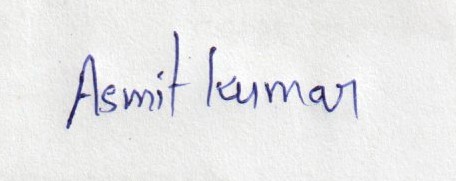 Asmit kumar